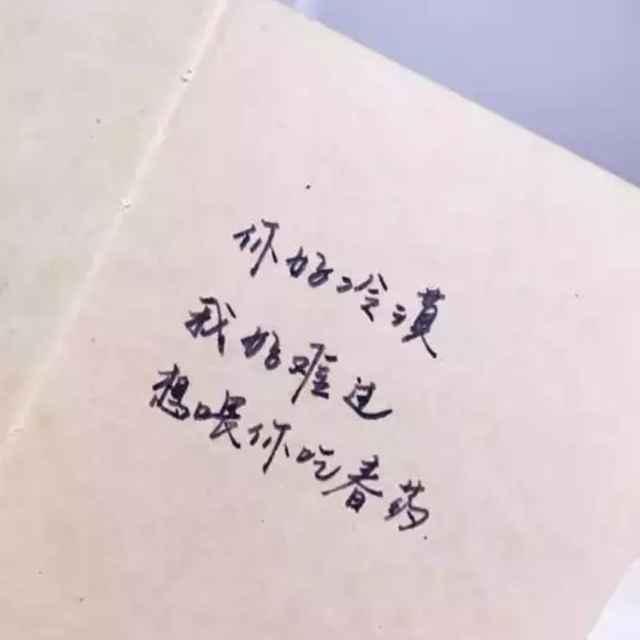 你好冷漠
我好难过
想喂你吃春药